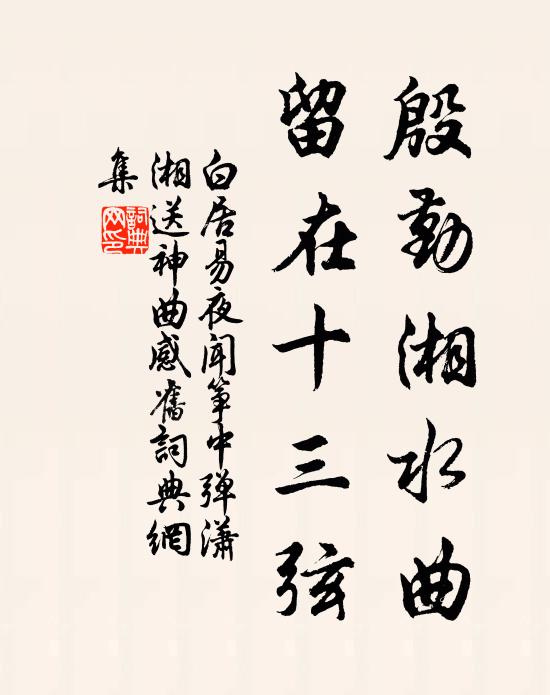 殷勤湘水曲
留在十三弦
白居易夜闻筝中弹潇
湘送神曲感舊詞典網
集
詞典
网印